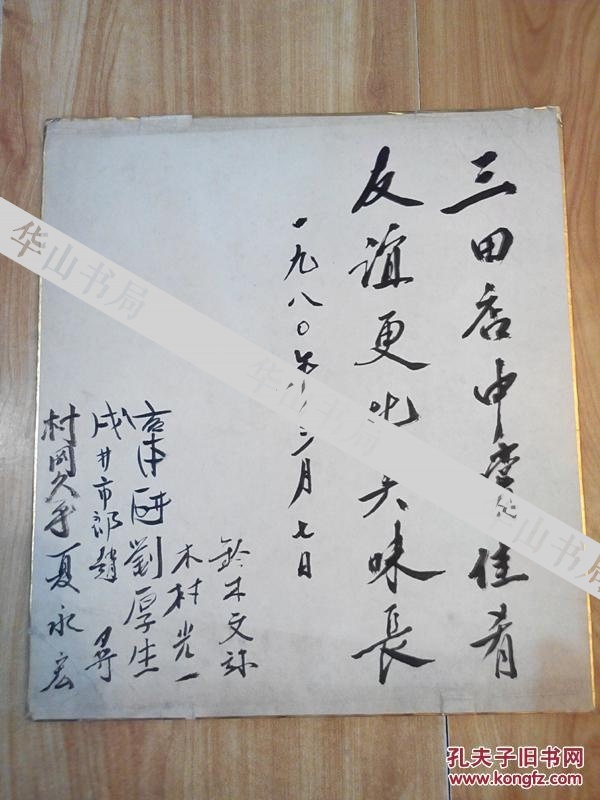 三田店中尝佳肴
友谊更比天味長
一九八〇年十二月七日
鈴木文弥
木村光一
劉厚生
戌井市郎 趙尋
村岡久平 夏永宏
华山书局
华山书局
华山书局
孔夫子旧书网
www.kongfz.com